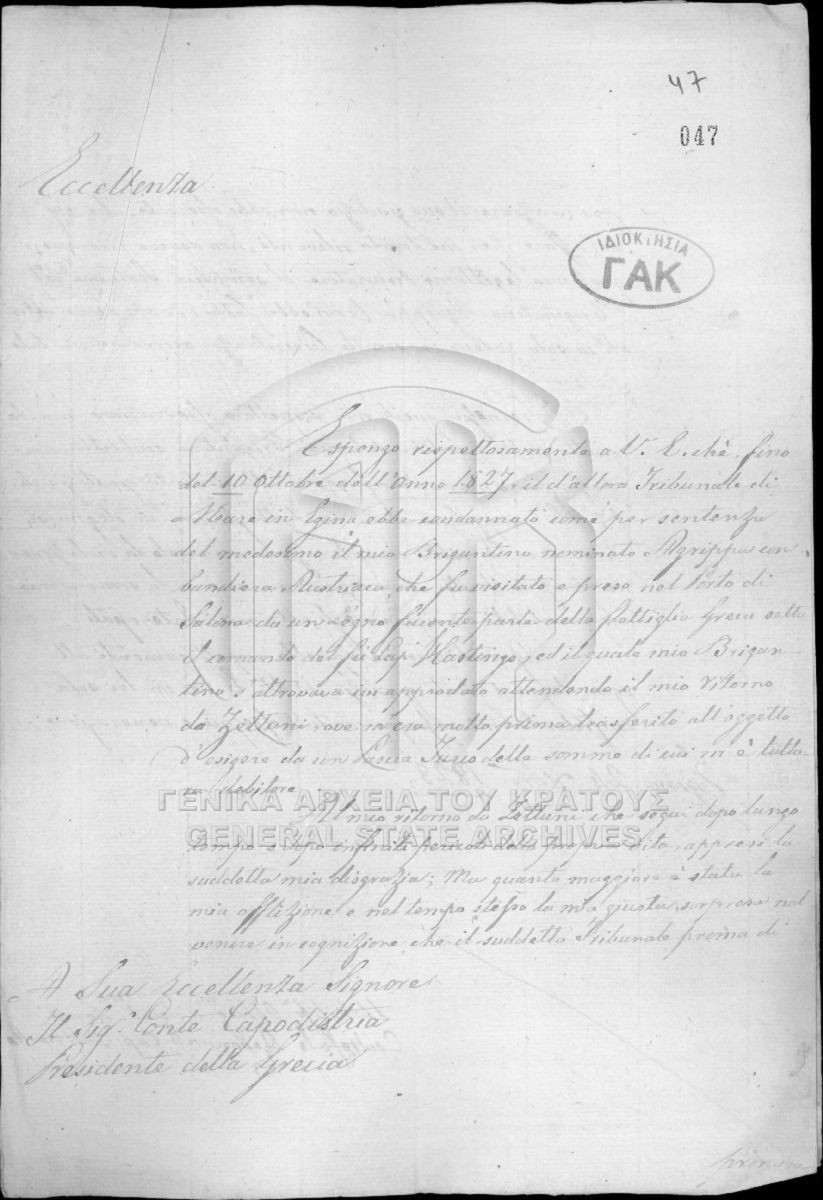 47
047
Eccellenza
ΙΔΙΟΚΤΗΣΙΑ
ΓΑΚ
Esponzo rispettosamente a V. E. chè fino
del 10 Ottobre dell'anno 1827. il d'allora Tribunale di
Mare in Egina ebbe condannato come per sentenza
del medesimo il mio Brigantino nominato Agrippa con
bandiera Austriaca, che fu visitato e preso nel Porto di
Salona da un Legno facente parte della flottiglia Greca sotto
il comando del fù Cap: Hastings, ed il quale mio Brigan-
tino s'attrovava approdato attendendo il mio ritorno
da Zettuni, ove m'era molto prima trasferito all'oggetto
d'esigere da un Pascia Turco delle somme di cui m'è tutto-
ra debitore.
Al mio ritorno da Zettuni che seguì dopo lungo
tempo e dopo infiniti pericoli della propria vita, appresi la
suddetta mia disgrazia; Ma quanto maggiore è stata la
mia afflizione e nel tempo stesso la mia giusta sorpresa nel
venire in cognizione che il suddetto Tribunale prima di
A Sua Eccellenza Signore
Il Sigr. Conte Capodistria
Presidente della Grecia
ΓΕΝΙΚΑ ΑΡΧΕΙΑ ΤΟΥ ΚΡΑΤΟΥΣ
GENERAL STATE ARCHIVES